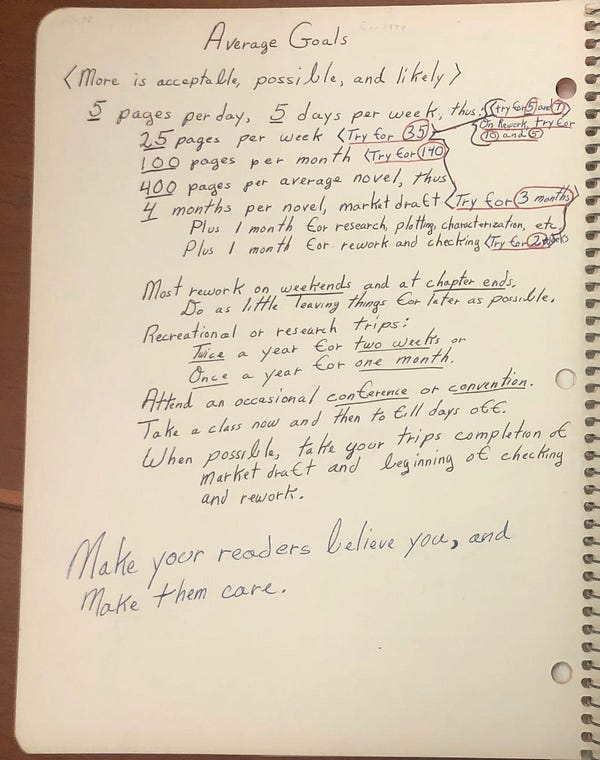 Average Goals
<More is acceptable, possible, and likely>
5 pages per day, 5 days per week, thus: <try for 5 and 7>
<On Rework, try for
10 and 5>
25 pages per week <Try for 35>
100 pages per month <Try for 140>
400 pages per average novel, thus
4 months per novel, market draft <Try for 3 months>
Plus 1 month for research, plotting, characterization, etc.
Plus 1 month for rework and checking <Try for 2
Most rework on weekends and at chapter ends.
Do as little leaving things for later as possible.
Recreational or research trips:
Twice a year for two weeks or
Once a year for one month.
Attend an occasional conference or convention.
Take a class now and then to fill days off.
When possible, take your trips completion of
market draft and beginning of checking
and rework.
Make your readers believe you, and
make them care.